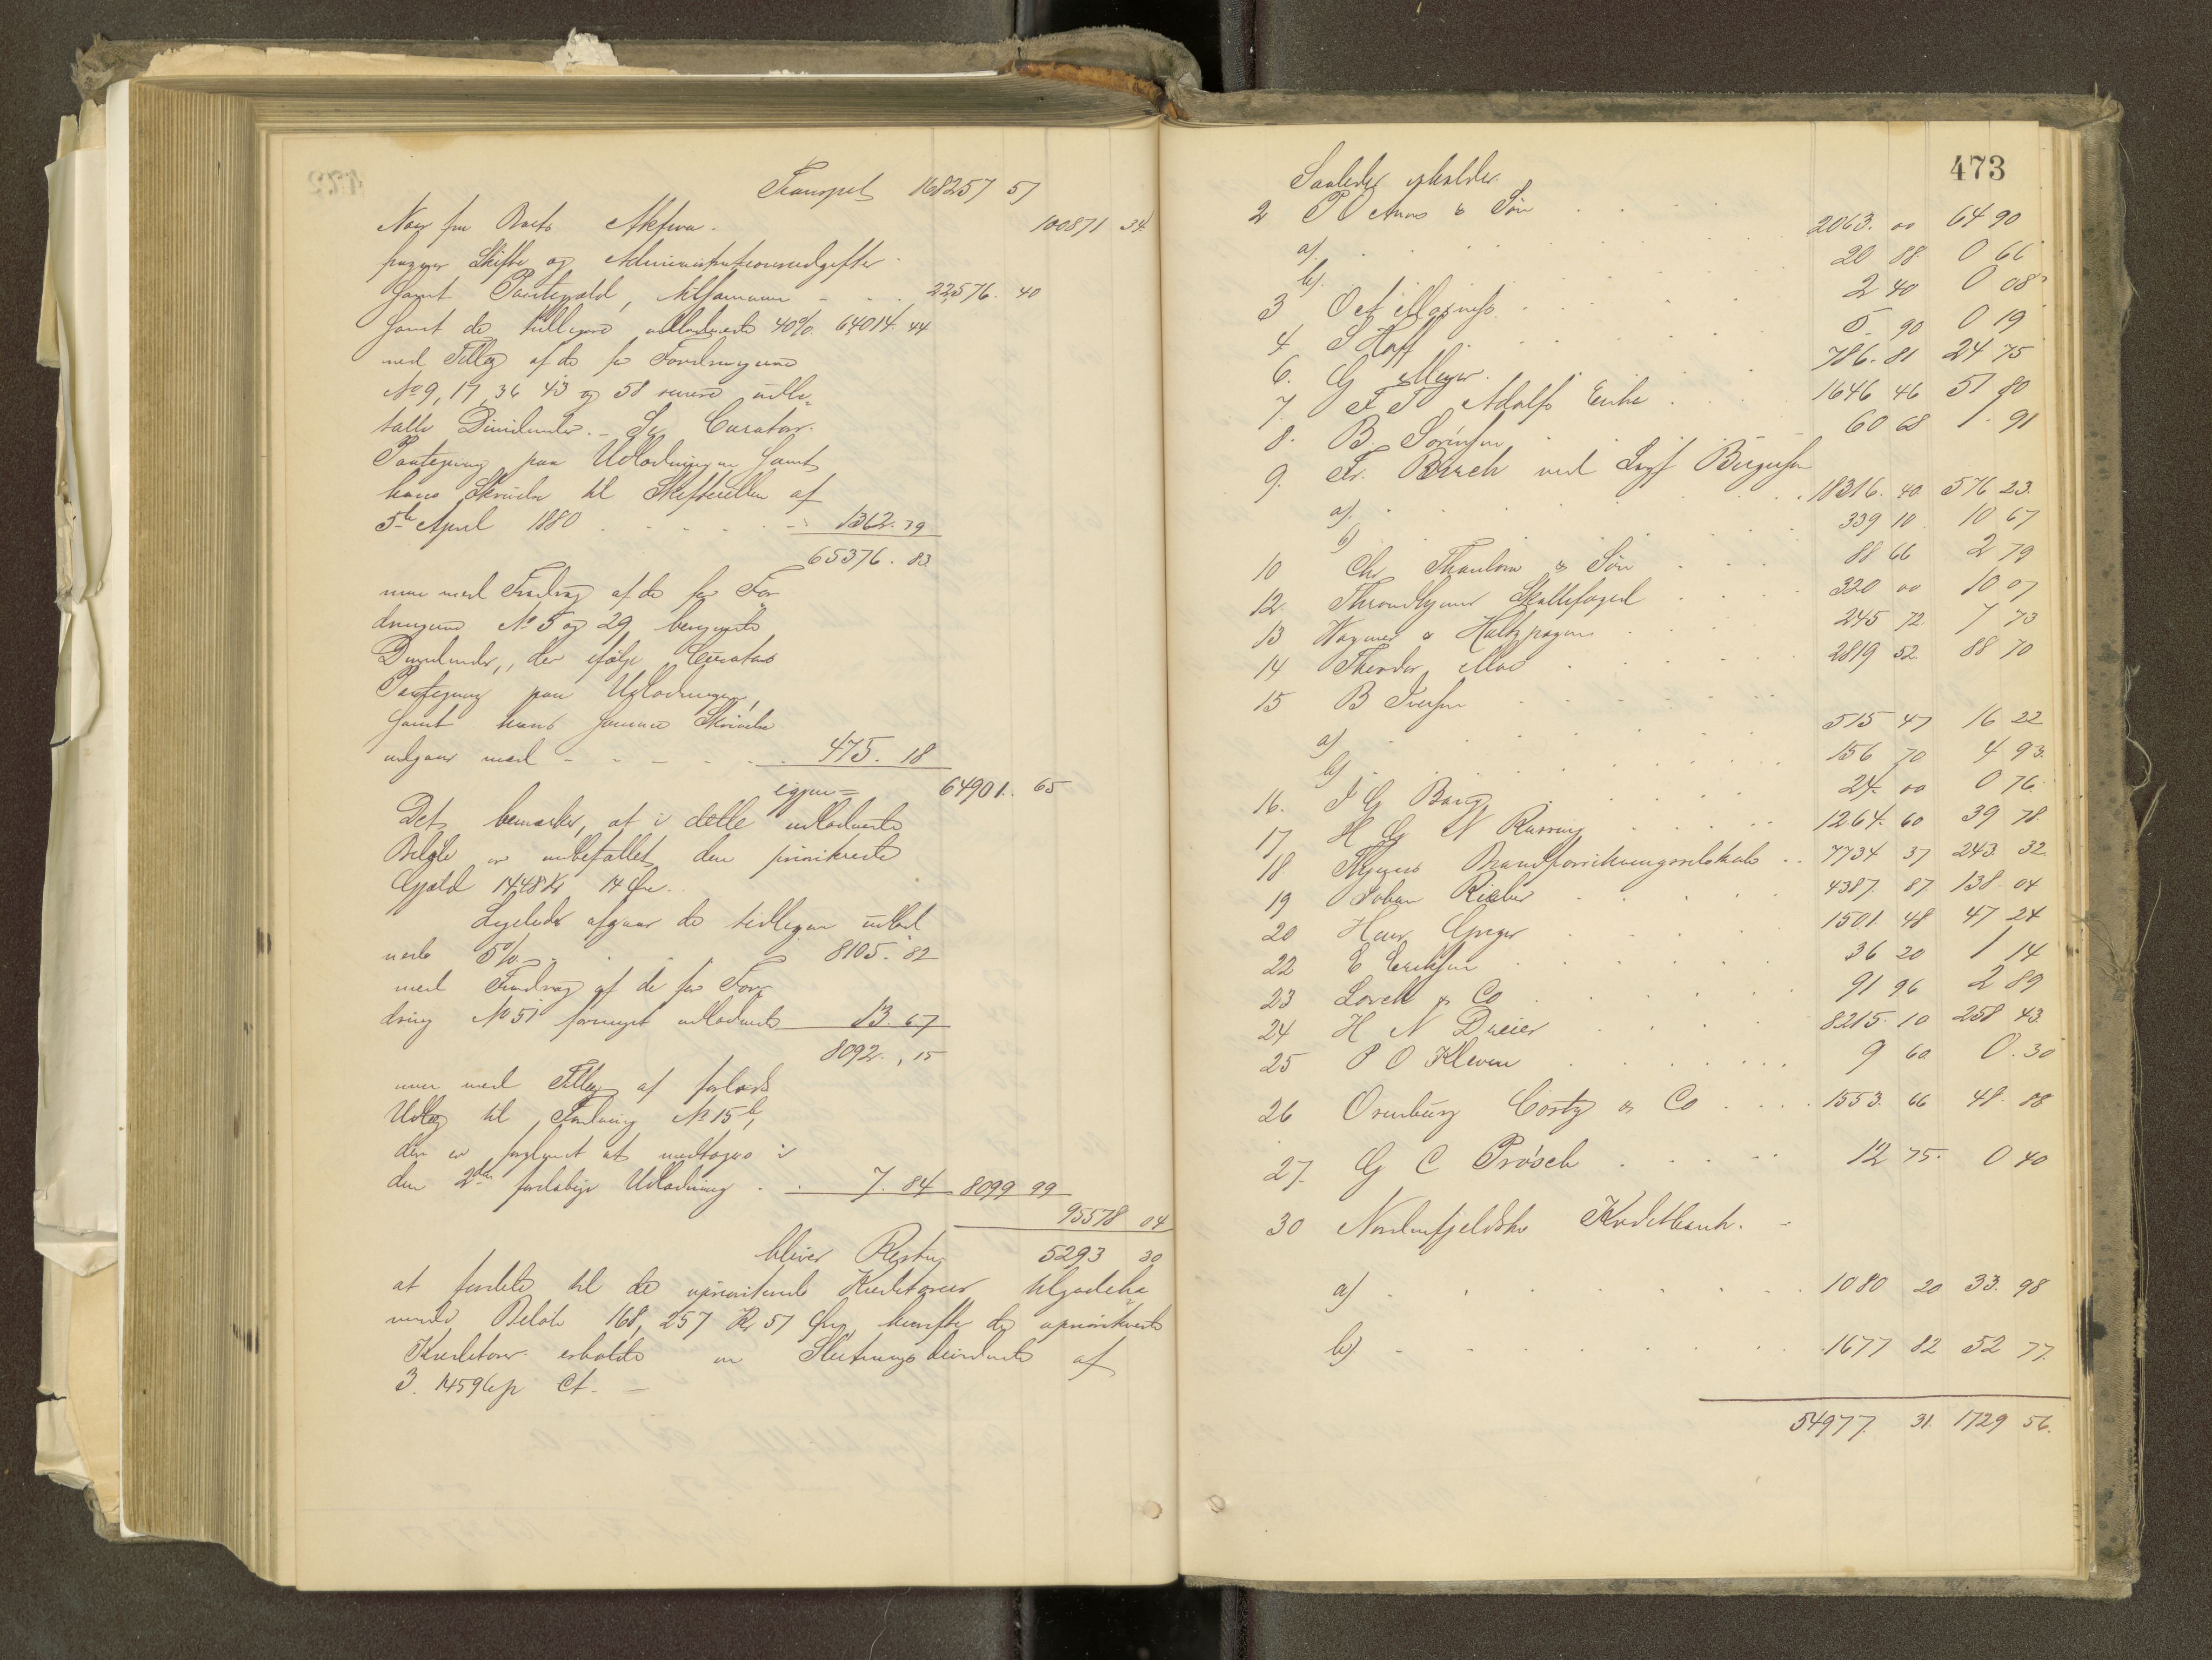 Transport 168257 57
Naar fra Boets Aktiva 100871 34
fragaar Skifte og Administrationsudgifter
samt Pantegjæld, tilsammen - - - 22,576. 40
samt de tidligere udloddede 40%. 64014. 44
med Tillæg af de for Fordringerne
No 9, 17, 36 43 og 58 senere udbe-
talte Dividender. - Se Curators
Paategning paa Udlodningen samt
hans Skrivelse til Skifteretten af
5te April 1880 - - - - - 1362. 39
65376. 83
men med Fradrag af de for For-
dringerne No 5 og 29 beregnede
Dividender, der ifølge Curators
Paategning paa Udlodningen,
samt hans samme Skrivelse
udgaar med - - - - - 475. 18
igjen = 64901. 65
Det bemærkes, at i dette udloddede
Beløb er indbefattet den prioriterte
Gjæld 1448 Kr 14 Øre.
Ligeledes afgaar de tidligere udlod-
dede 5% - . . . . 8105. 82
med Fradrag af de for For-
dring No 51 formeget udloddede 13. 67
8092. 15
men med Tillæg af forlods
Udlæg til Fordring No 15 b,
der er forglemt at medtages i
den 2den foreløbige Udlodning . . 7. 84 8099 99
95578 04
bliver Resten 5293 30
at fordele til de uprioriterede Kreditorers tilgodeha-
vende Beløb 168,257 Kr 57 Øre, hvorefter de uprioriterte
Kreditorer erholde en Slutningsdividende af
3.14596 p Ct. -
473
Saaledes erholder
2 P O & Søn . . . .
a) . . . . . 2063. 00 64 90
b) . . . . . 20 88 0 66
3 O A . . . . 2 40 0 08
4 S Hoff . . . . 5. 90 0 19
6. G Meyer . . . . 786. 81 24 75
7. F F Adolfs Enke . . . 1646 46 51 80
8. B. Sørensen . . . . 60 68 1. 91
9. Fr. Birch ved Sagf Birgersen
a) . . . . . 18316. 40 576 23
b) . . . . . 339 10 10 67
10 Chr Thaulow & Søn . . . 88 66 2 79
12. Throndhjems Skattefoged . . . 320 00 10 07
13 Wagner & . . . 245 72 7 73
14 Theodor Moe . . . . 2819 52 88 70
15 B Iversen . . . .
a) . . . . . 515 47 16 22
b) . . . . . 156 70 4 93
16. I G Bang . . . . 24. 00 0 76
17 H G N . . . . 1264. 60 39 78
18. Brandforsikringsselskab . . 7734 37 243. 32
19 Johan Rieber . . . . 4387. 87 138. 04
20 Hans Greger . . . . 1501. 48 47 24
22 E Eriksen . . . . 36 20 1 14
23 Lorck & Co . . . . 91 96 2 89
24 H N Dreier . . . . 8215. 10 258 43
25 P O Kleven . . . . 9 60 0. 30
26 Orenburg Cortz & Co . . . 1553. 66 48. 88
27. G C Prøsch . . . . 12 75. 0 40
30 Nordenfjeldske Kreditbank. -
a) . . . . . 1080 20 33. 98
b) - . . . . . 1677 82 52 77.
54977. 31. 1729 56.